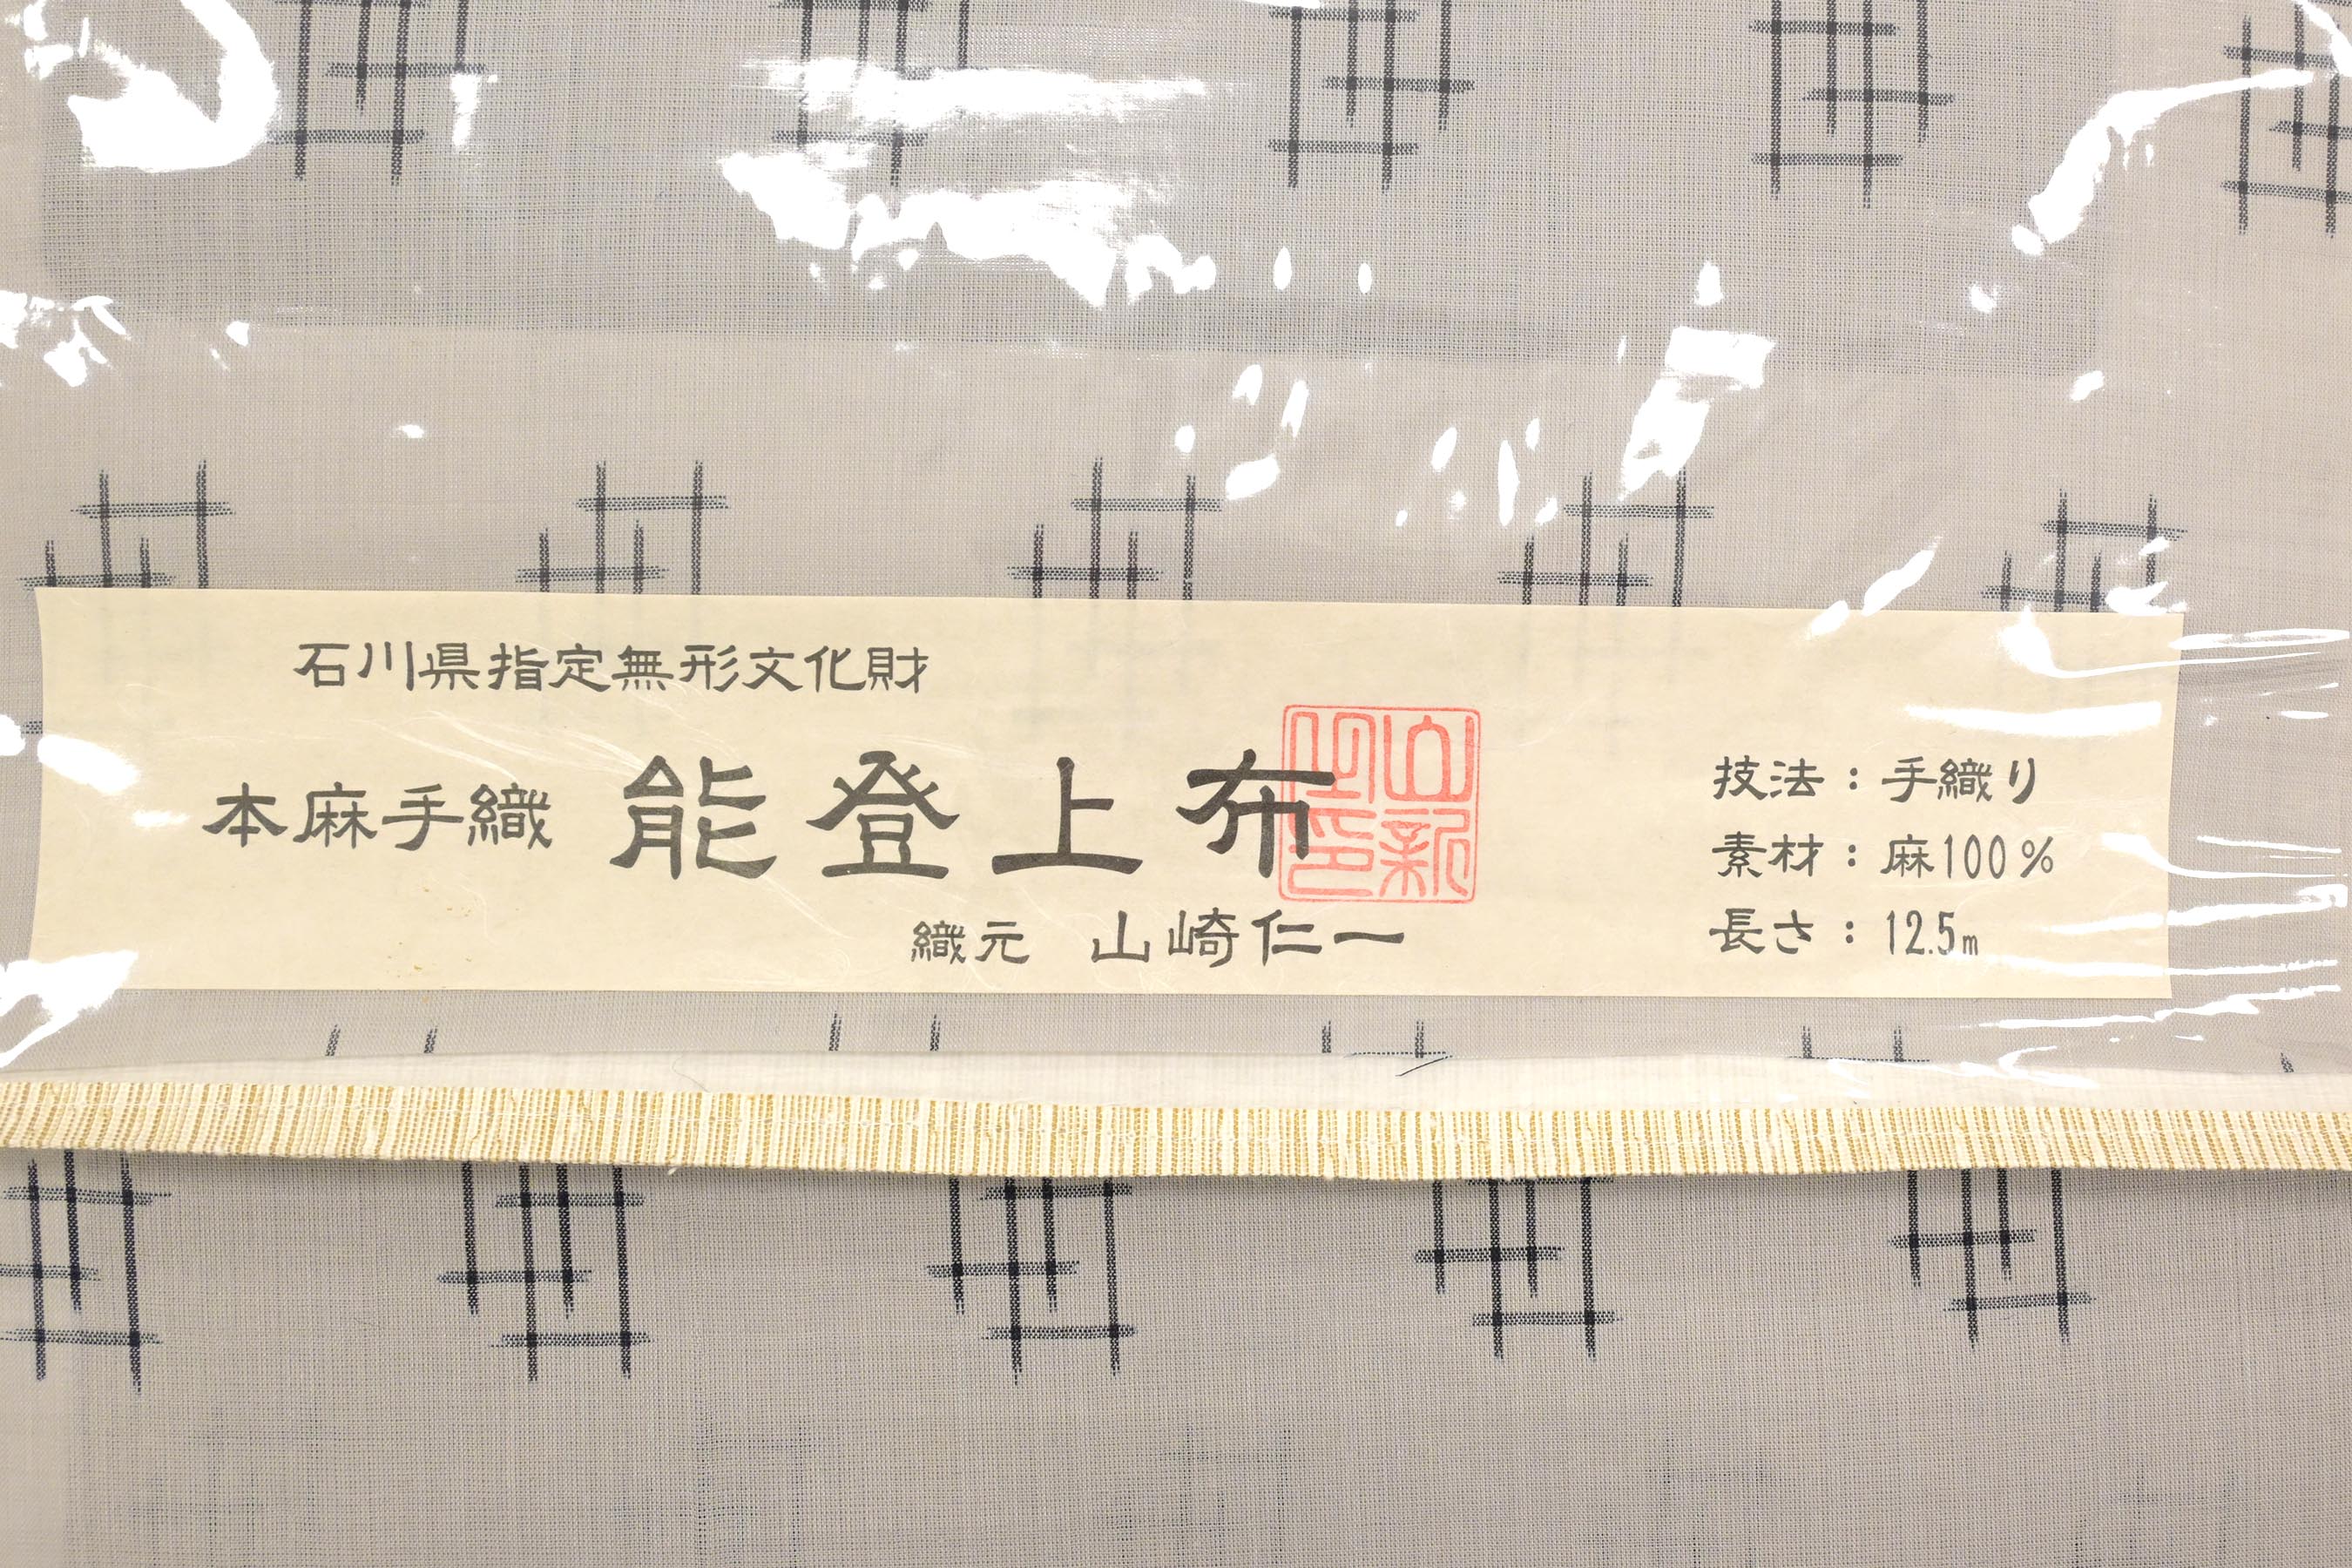 石川県指定無形文化財
本麻手織 能登上布
織元 山崎仁一
技法：手織り
素材：麻100%
長さ：12.5m